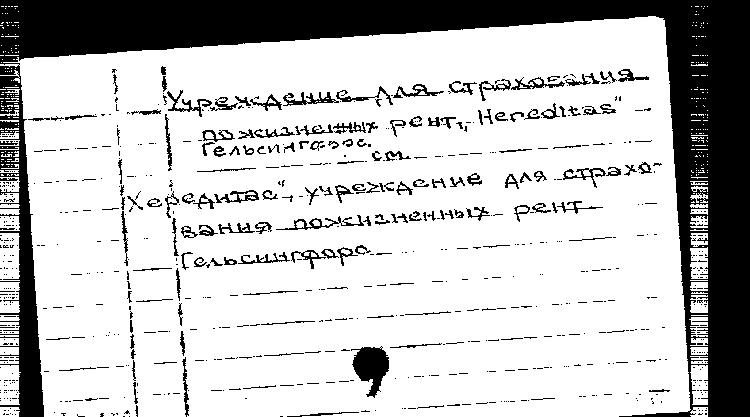 Учреждение для страхования
пожизненных рент „Hereditas"
Гельсингфорс.
см.
Хередитас", учреждение для страхо-
вания пожизненных рент
Гельсингфорс